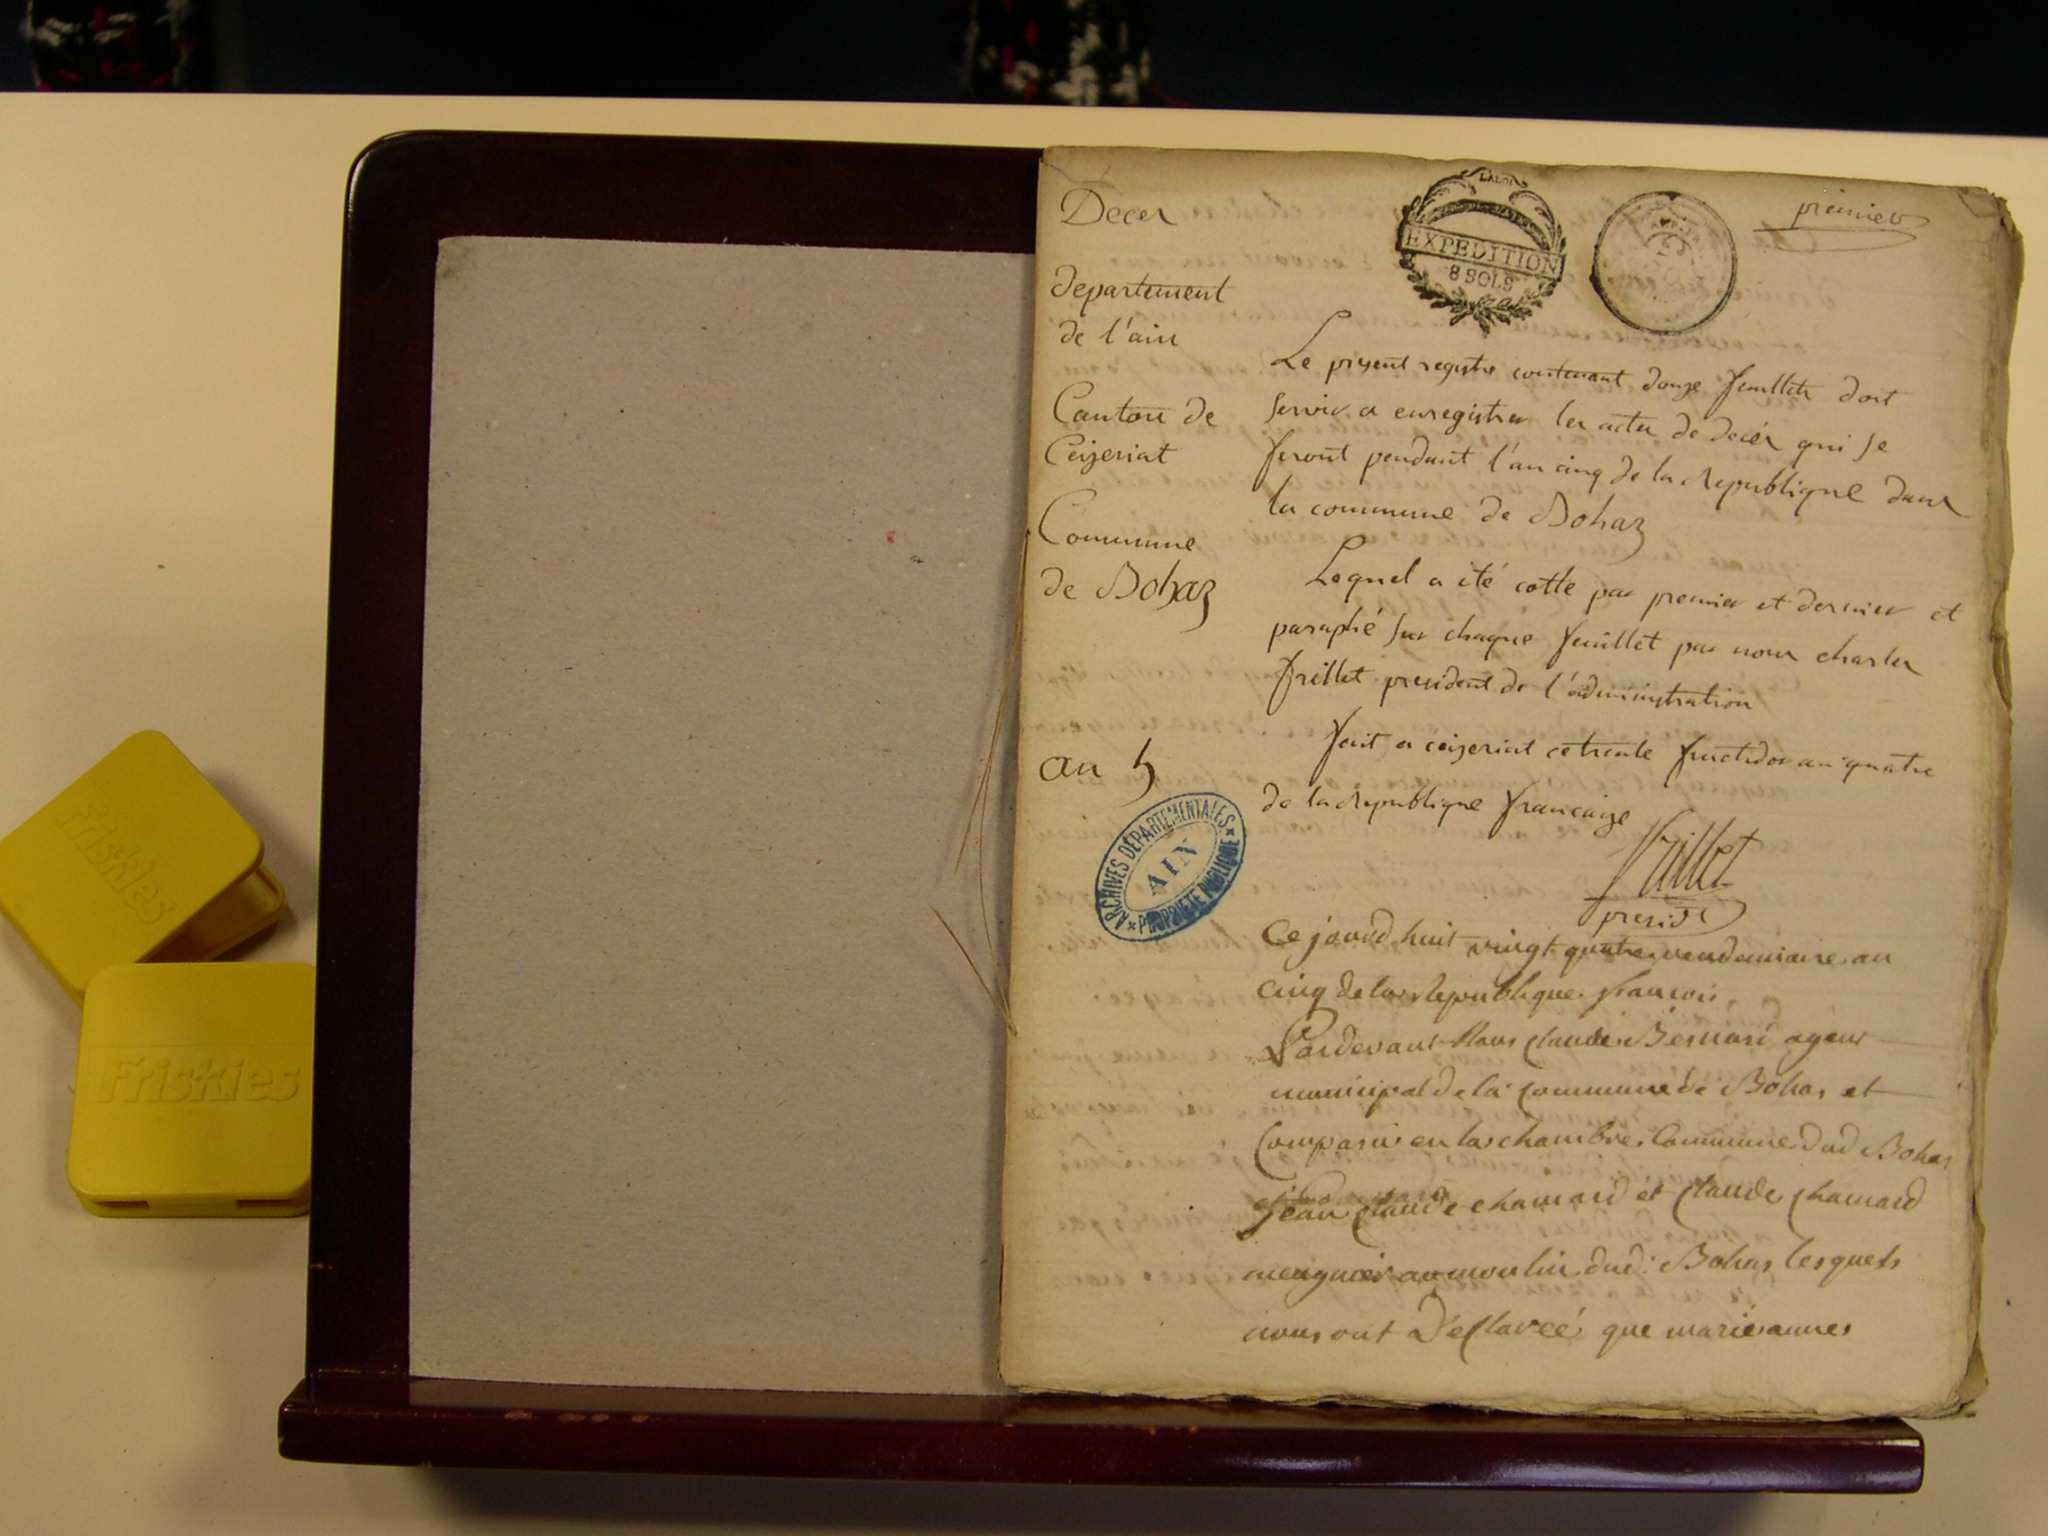 premier
LA LOI
EXPEDITION
8 SOLS
Deces
departement
de l'ain
Canton de
Ceizeriat
Commune
de Bohaz
an 5
ARCHIVES DÉPARTEMENTALES
AIN
PROPRIÉTÉ PUBLIQUE
Le present registre contenant douze feuillets doit
servir a enregistrer les actes de decés qui se
feront pendant l'an cinq de la republique dans
la commune de Bohaz
Lequel a été cotté par premier et dernier et
paraphé sur chaque feuillet par nous charles
frillet president de l'administration
fait a ceizeriat ce trente fructidor an quatre
de la republique francaize
frillet
presidt
Ce jourd huit vingt quatre vendemiaire an
cinq de la Republique francois
Pardevant Nous Claude Bernard agent
municipal de la Commune de Bohas et
Comparus en la chambre Commune dud Bohas
jean claude chanard et Claude Chanard
meugnier au moulin dud: Bohas lesquels
nous ont Déclaréé que marie annes
Friskies
Friskies